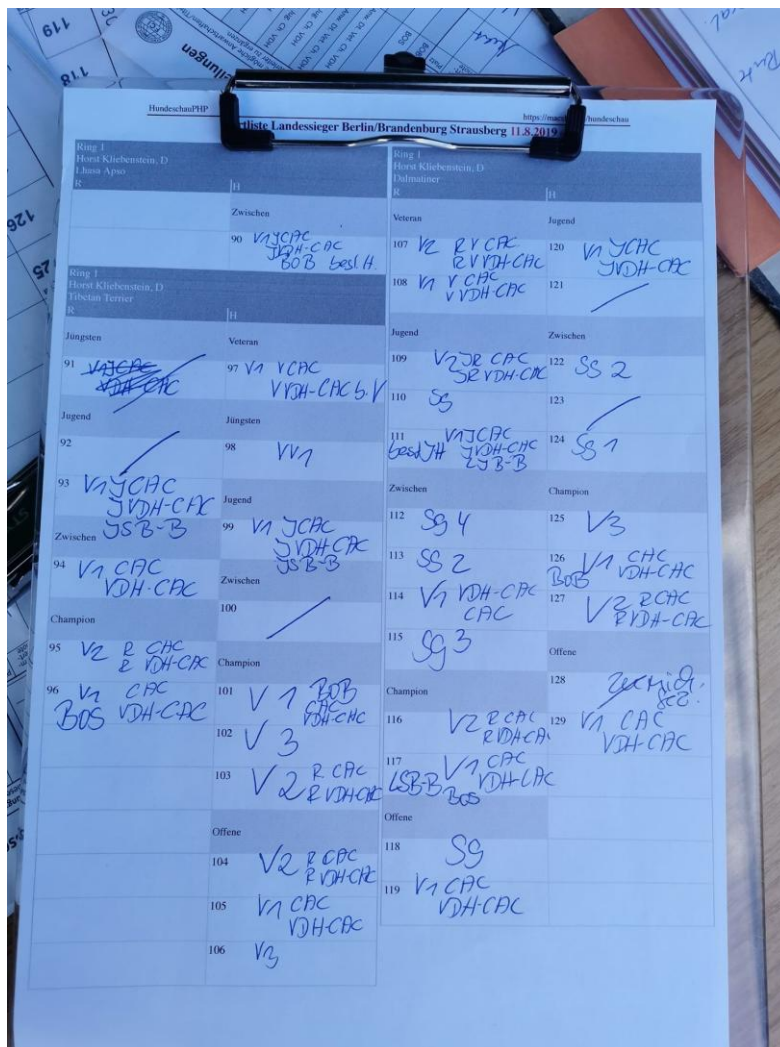 119
118
126
25
ellungen
HundeschauPHP
hundeschau
rtliste Landessieger Berlin/Brandenburg Strausberg 11.8.2019
Ring 1
Horst Kliebenstein, D
Lhasa Apso
R H
Zwischen
90 V1 JCAC
JVDH-CAC
BOB besl. H.
Ring 1
Horst Kliebenstein, D
Tibetan Terrier
R H
Jüngsten
91 V1 JCAC
VDH-CAC
Jugend
92
93 V1 JCAC
JVDH-CAC
JSB-B
Zwischen
94 V1 CAC
VDH-CAC
Champion
95 V2 R CAC
R VDH-CAC
96 V1 CAC
BOS VDH-CAC
Veteran
97 V1 VCAC
VVDH-CAC b.V
Jüngsten
98 VV1
Jugend
99 V1 JCAC
JVDH-CAC
JSB-B
Zwischen
100
Champion
101 V1 BOB
CAC
VDH-CAC
102 V3
103 V2 R CAC
R VDH-CAC
Offene
104 V2 R CAC
R VDH-CAC
105 V1 CAC
VDH-CAC
106 V3
Ring 1
Horst Kliebenstein, D
Dalmatiner
R H
Veteran
107 V2 RVCAC
RVVDH-CAC
108 V1 VCAC
VVDH-CAC
Jugend
109 V2 JR CAC
JRVDH-CAC
110 Sg
111 V1 JCAC
JVDH-CAC
Zwischen
112 Sg 4
113 SG 2
114 V1 VDH-CAC
CAC
115 Sg 3
Champion
116 V2 R CAC
RVDHCA
117 V1 CAC
LSB-B VDH-CAC
BOS
Offene
118 Sg
119 V1 CAC
VDH-CAC
Jugend
120 V1 JCAC
JVDH-CAC
121
Zwischen
122 SG 2
123
124 Sg 1
Champion
125 V3
126 V1 CAC
BOB VDH-CAC
127 V2 RCAC
RVDH-CAC
Offene
128
129 V1 CAC
VDH-CAC